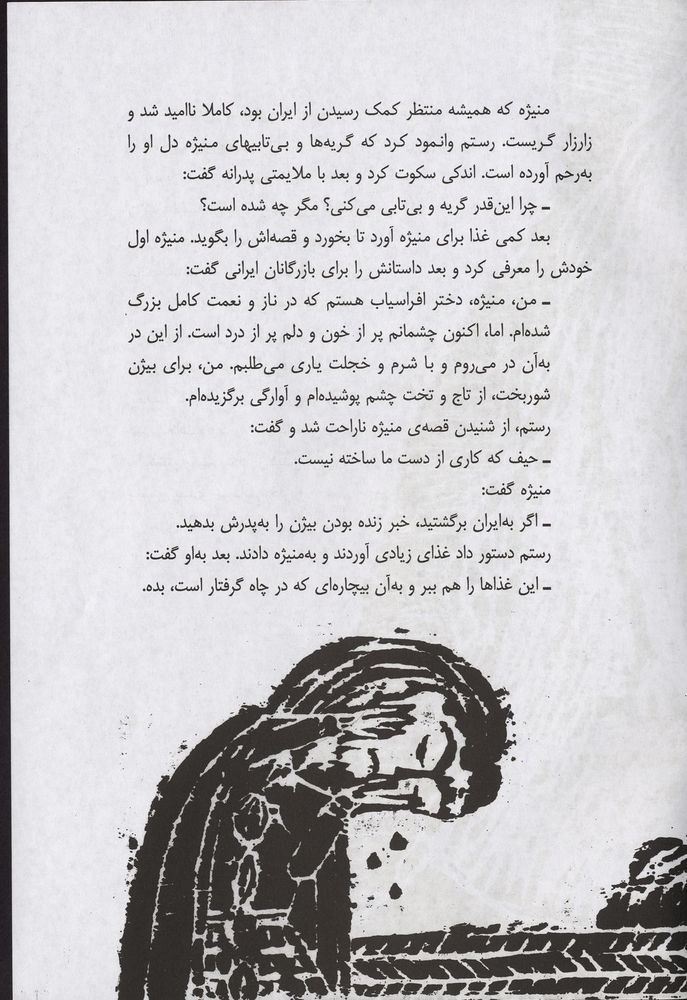 منیژه که همیشه منتظر کمک رسیدن از ایران بود، کاملا ناامید شد و
زارزار گریست. رستم وانمود کرد که گریه‌ها و بی‌تابیهای منیژه دل او را
به‌رحم آورده است. اندکی سکوت کرد و بعد با ملایمتی پدرانه گفت:
ـ چرا این‌قدر گریه و بی‌تابی می‌کنی؟ مگر چه شده است؟
بعد کمی غذا برای منیژه آورد تا بخورد و قصه‌اش را بگوید. منیژه اول
خودش را معرفی کرد و بعد داستانش را برای بازرگانان ایرانی گفت:
ـ من، منیژه، دختر افراسیاب هستم که در ناز و نعمت کامل بزرگ
شده‌ام. اما، اکنون چشمانم پر از خون و دلم پر از درد است. از این در
به‌آن در می‌روم و با شرم و خجلت یاری می‌طلبم. من، برای بیژن
شوربخت، از تاج و تخت چشم پوشیده‌ام و آوارگی برگزیده‌ام.
رستم، از شنیدن قصه‌ی منیژه ناراحت شد و گفت:
ـ حیف که کاری از دست ما ساخته نیست.
منیژه گفت:
ـ اگر به‌ایران برگشتید، خبر زنده بودن بیژن را به‌پدرش بدهید.
رستم دستور داد غذای زیادی آوردند و به‌منیژه دادند. بعد به‌او گفت:
ـ این غذاها را هم ببر و به‌آن بیچاره‌ای که در چاه گرفتار است، بده.